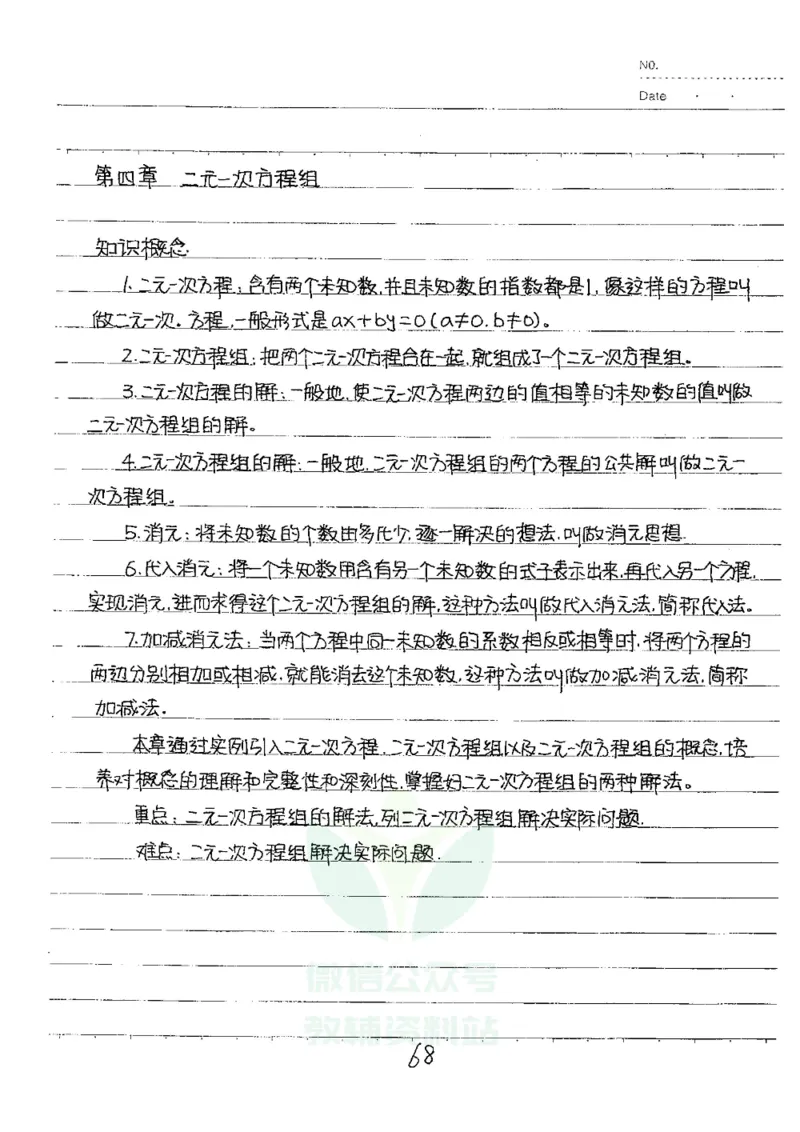 NO.
Date
第四章 二元一次方程组
知识概念
1.二元一次方程:含有两个未知数,并且未知数的指数都是1,像这样的方程叫
做二元一次.方程,一般形式是ax+by=0(a≠0.b≠0)。
2.二元一次方程组:把两个二元一次方程合在一起,就组成了一个二元一次方程组。
3.二元一次方程的解:一般地,使二元一次方程两边的值相等的未知数的值叫做
二元一次方程组的解。
4.二元一次方程组的解:一般地,二元一次方程组的两个方程的公共解叫做二元一
次方程组。
5.消元:将未知数的个数由多化少,逐一解决的想法,叫做消元思想.
6.代入消元:将一个未知数用含有另一个未知数的式子表示出来,再代入另一个方程,
实现消元,进而求得这个二元一次方程组的解,这种方法叫做代入消元法,简称代入法。
7.加减消元法:当两个方程中同一未知数的系数相反或相等时,将两个方程的
两边分别相加或相减,就能消去这个未知数,这种方法叫做加减消元法,简称
加减法.
本章通过实例引入二元一次方程,二元一次方程组以及二元一次方程组的概念,培
养对概念的理解和完整性和深刻性,掌握好二元一次方程组的两种解法。
重点:二元一次方程组的解法,列二元一次方程组解决实际问题.
难点:二元一次方程组解决实际问题.
微信公众号
教辅资料站
68